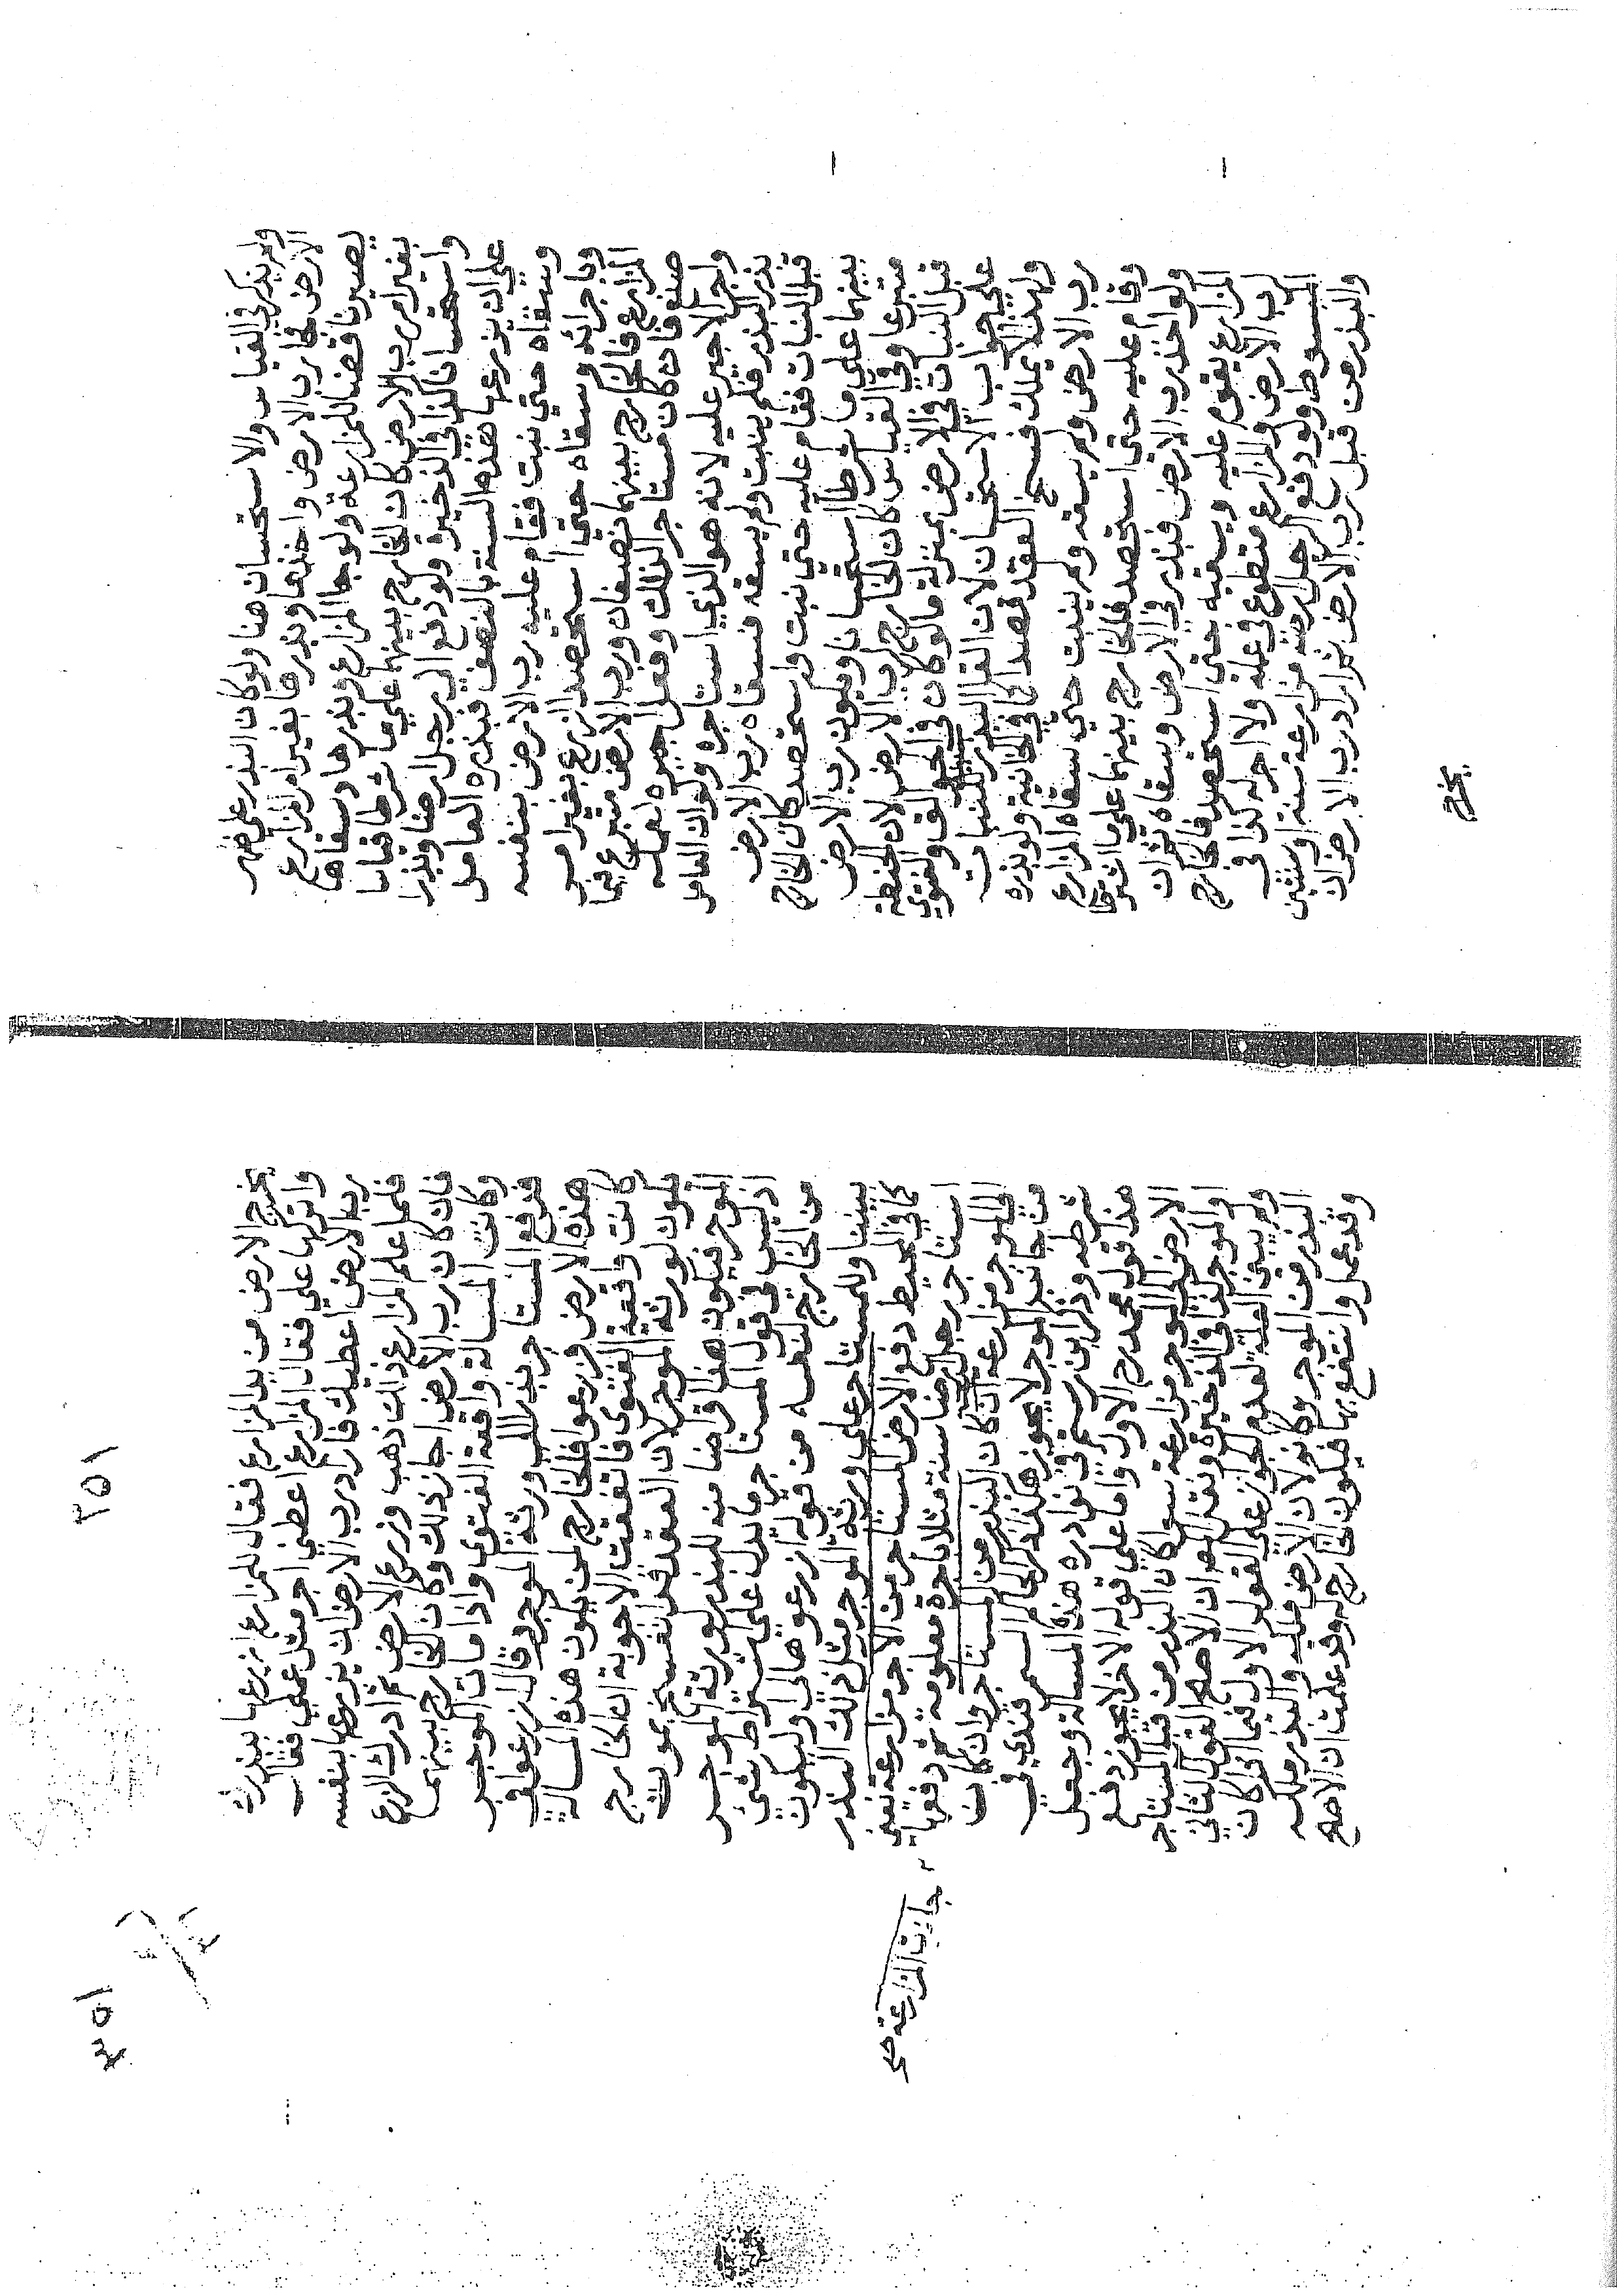 ولم يذكر في القياس والاستحسان هنا ولو كان البذر على ظهر
الارض فجا رب الارض واخذها وبذرها بغير امر المزارع
يصير ناقضا للمزارعة ولو جا المزارع وبذرها وسقاها
بغير امر رب الارض كان الخارج بينهما على ما شرطا قياسا
واستحسانا كذا في الذخيرة ولو دفع الى رجل ارضا وبذرا
على ان يزرعها هذه السنة بالنصف فبذره العامل
وسقاه حتى نبت فقام عليه رب الارض بنفسه
وباجرائه وسقاه حتى استحصد الزرع بغير امر
المزارع فالخارج بينهما نصفان ورب الارض متبرع فيما
صنع فان كان استاجر لذلك وفعل اجيره لعمله
واجر الاجير عليه لانه هو الذي استاجره ولو ان العامل
بذر البذر فلم ينبت ولم يسقه فسقاه رب الارض
قبل النبات فقام عليه حتى نبت واستحصد كان الخارج
بينهما على ما شرطا استحسانا ويكون رب الارض
متبرعا وفي القياس كان الخارج لرب الارض لان الحنطة
قبل النبات في الارض بمنزلة ما لو كان في الجوالق والفتوى
على جواب الاستحسان لان القا البذر للنبات
ولهذا لا يملك فسخ العقد قصدا كما في الخانية ولو بذره
رب الارض ولم يسقه ولم ينبت حتى سقاه المزارع
وقام عليه حتى استحصد فالخارج بينهما على ما اشترطا
ولو اخذ رب الارض فبذر في الارض وسقاه ثم ان
المزارع يقوم عليه ويسقيه حتى استحصد فالخارج
لرب الارض والمزارع متطوع في عمله ولا اجر له كذا في
المبسوط ولو دفع الرجل ارضه مزارعة سنة او سنتين
والبذر من قبل رب الارض ثم اراد رب الارض ان
يخرج
١٥٣
يخرج الارض من يد المزارع فقال للمزارع ازرعها ببذرك
واتركها علي فقال المزارع اعطني اجر مثل عملي فقال
رب الارض اعطيك فاراد رب الارض ان يزرعها بنفسه
فلما علم المزارع ذلك ذهب وزرع الارض ثم ادرك الزرع
فان كان رب الارض اجاز ذلك وكان الخارج بينهما
وكانت المسالة واقعة الفتوى واذا مات الموجر
فزرع المستاجر ببذر للـ ورثة الموجر قال زرعوا في
هذه الارض فزرعوا فالخارج لمن يكون هذه المسالة
كانت واقعة الفتوى فاتفقت الاجوبة ان الخارج
يكون لورثة الموجر لان العقد قد انفسخ بموت
الموجر فيكون هذا قرضا منه للبذر لورثة الموجر
اذ ليس في قول المستاجر ما يدل على اشتراط شي
من الخارج لنفسه من قوله ازرعوها لي او ليكون
بيننا وللمستاجر على ورثة الموجر مثل ذلك البذر
كما في المحيط دفع الارض المستاجر من الاجر مزارعة نعني
استاجر رجل ارضا سنة مثلا باجرة معلومة ثم دفعها
الى الموجر مزارعة ان كان البذر من المستاجر وان كان
من جانب الموجر لا يجوز هكذا ذكر الحاكم السمرقندي في
شرطه وذكر ابن رستم في نوادره هذه المسالة وجعل
هذا قول محمد رح الاول واما على قوله الاخر لا يجوز دفع
الارض الى الموجر مزارعة سوا كان البذر من قبل المستاجر
او الموجر كذا في الذخيرة ونقل الصدر ان الاصح القول الثاني
ولم يبين العلة لعدم الجواز على القول الاول فيما اذا كان
البذر من الموجر وكانه لان الارض ملكه والبذر ملكه
وقد عمل وانتفع بها فيكون الخارج له وقد علمت ان الاصح
جانب المزارعة صح
١٥٣